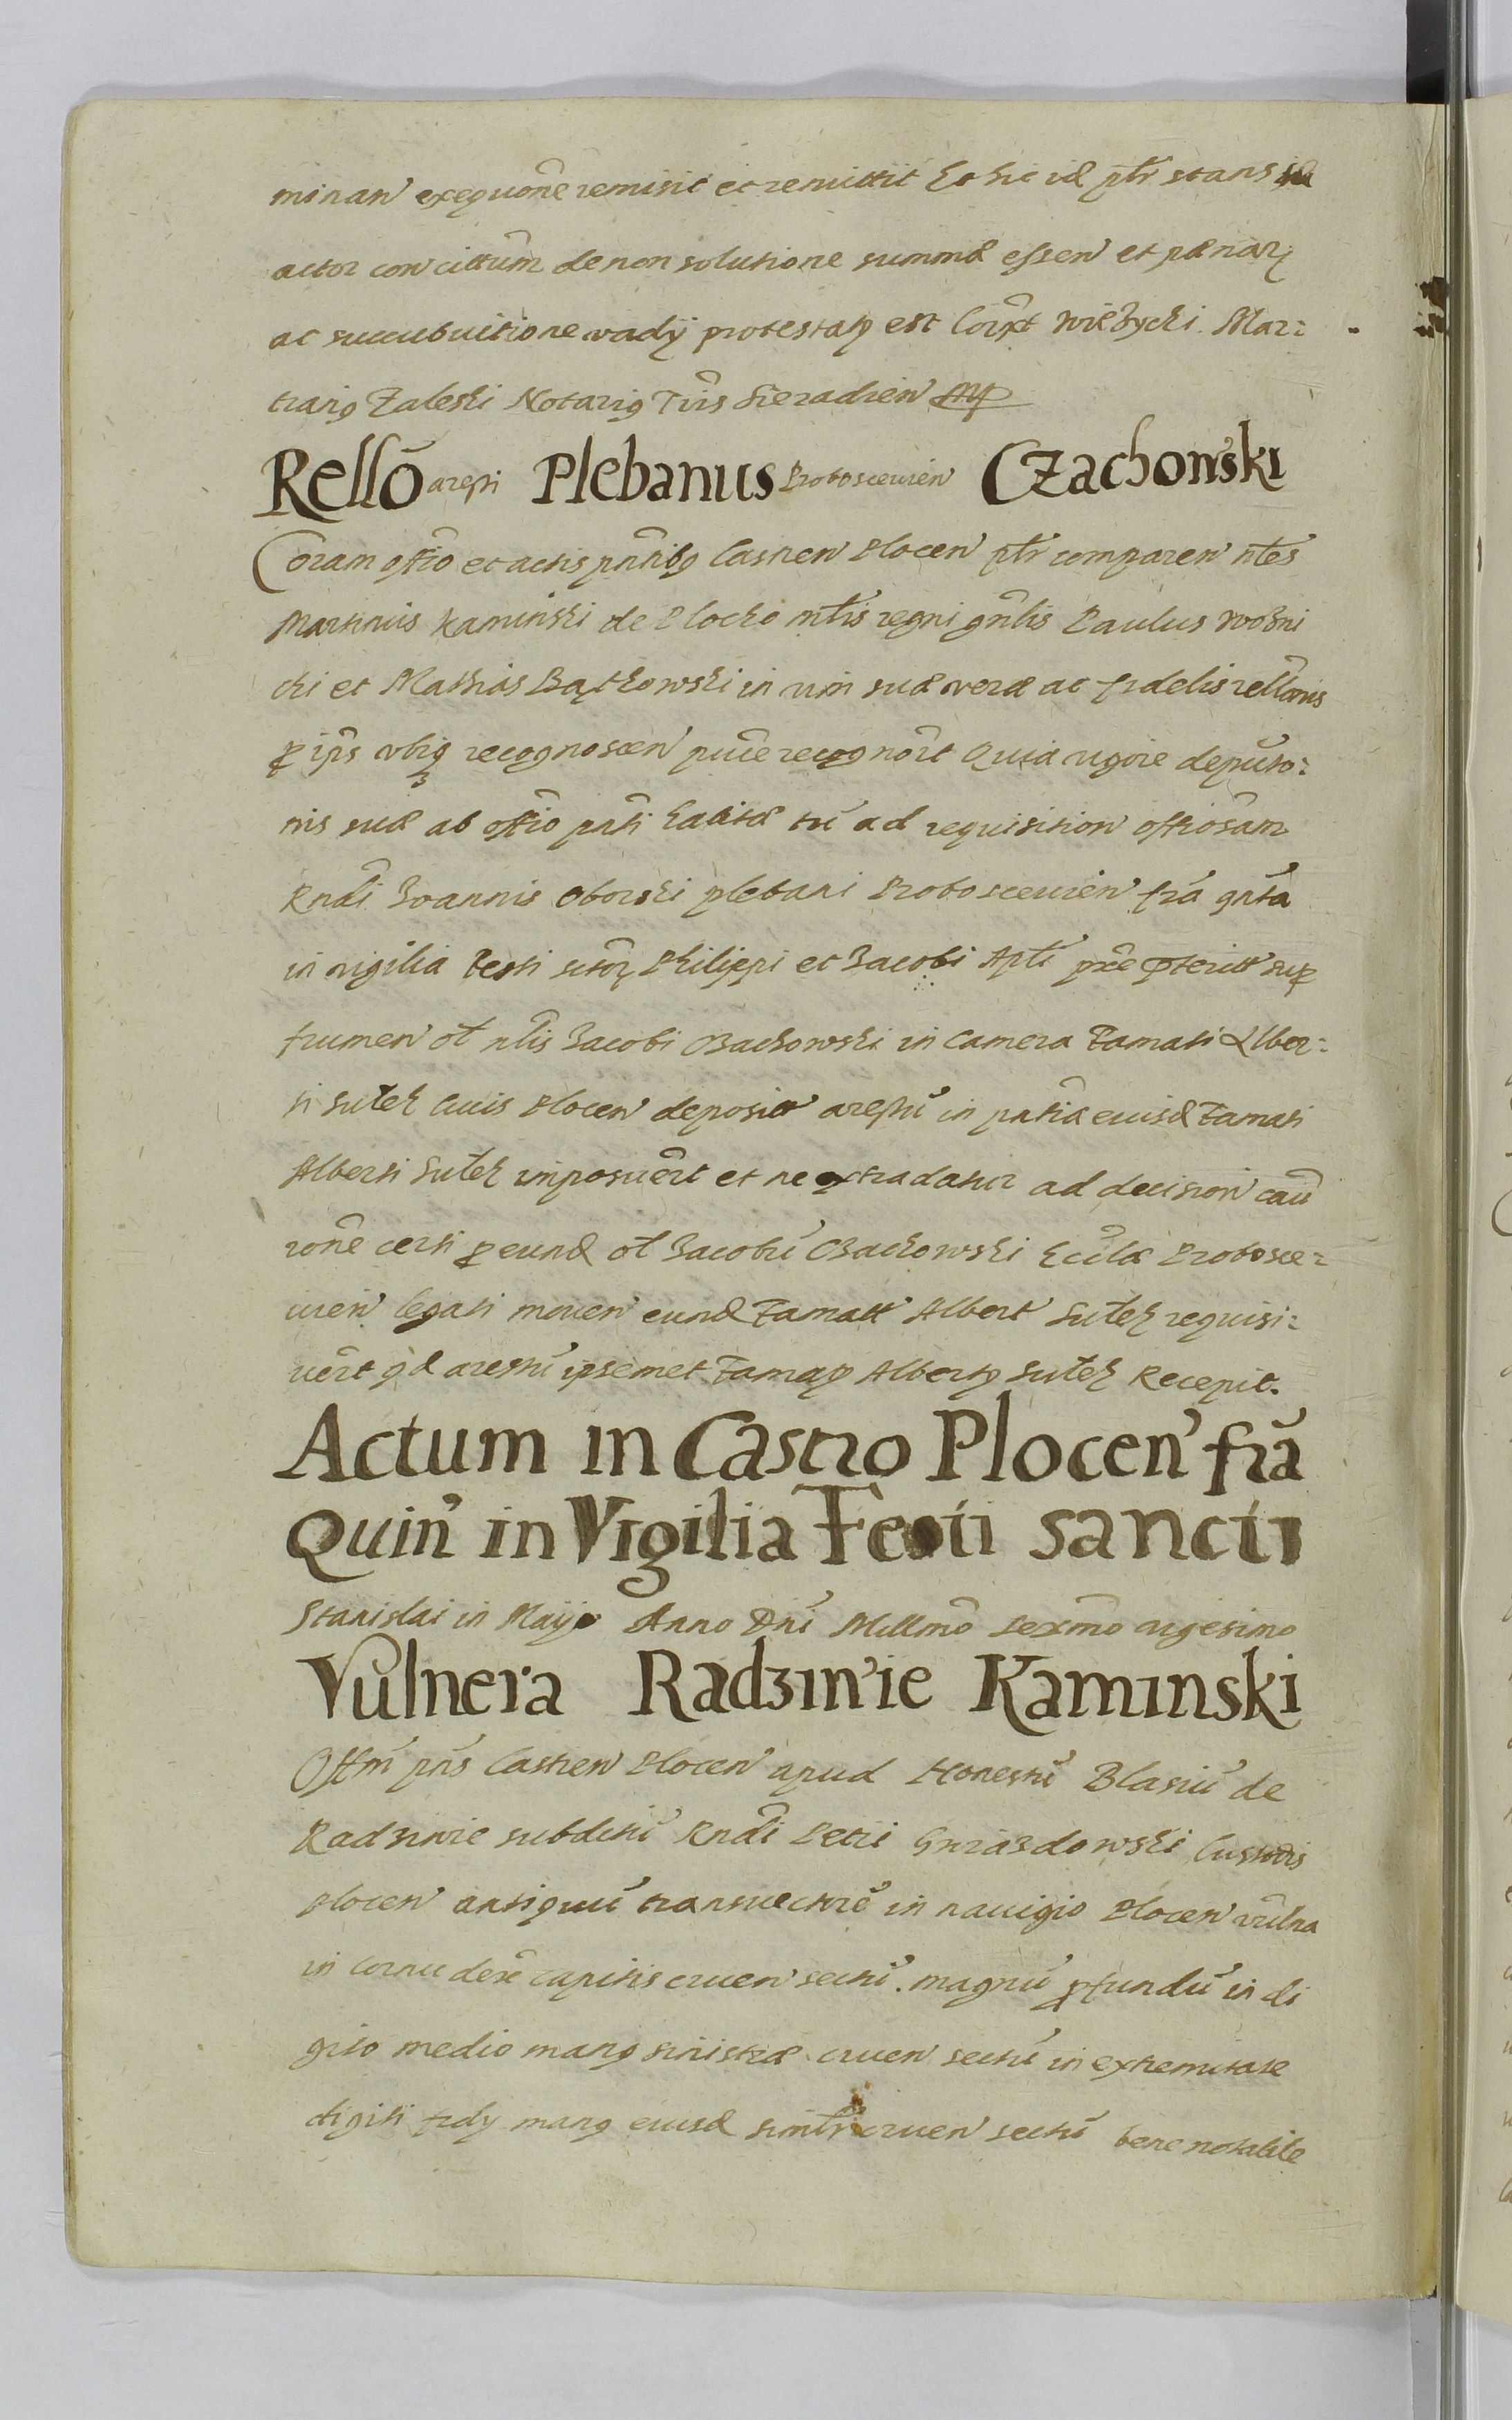 minan exequone remisit et remittit Et hic id ptr stans
actor con cittum de non solutione summæ essen et pænarz
ac succubuitione vadij protestatq est Corxt Wierzbycki Mar:
tianq Zaleski Notariq Tris Sieradien
Rello aresti Plebanus Proboscewien Czachowski
Coram offio et actis pntibq Castren Plocen ptr comparen ntes
Martinus Kaminski de Plocko mtlis regni gnlis Paulus Wozni
cki et Mathias Bątkowski in vim suæ veræ ac fidelis rellonis
p ips vbiq recognoscen puce recognort Quia vigore deputo:
nis suæ ab offio pnti habitæ tū ad requisition offiosam
Rndi Joannis Oborski plebani Proboscewien fra qnta
in vigilia Festi sctorz Philippi et Jacobi Aptł pxe pteritt sup
frumen ol nlis Jacobi Czachowski in camera Famati Alber:
ti Sulek civis Plocen deposit arestū in pntia eiusd Famati
Alberti Sulek imposuert et ne extradatur ad decision caū
rone certi p eund ol Jacobū Czachowski Ecclæ Probosce:
wien legati moven eund Famatt Albert Sulek requisi:
uert qd arestū ipsemet Famatq Albertq Sulek Recepit.
Actum in Castro Plocen fra
Quin in Vigilia Festi sancti
Stanislai in Mayo Anno Dni Millmo Sexmo vigesimo
Vulnera Radzinie Kaminski
Offm pns Castren Plocen apud Honestū Blasiū de
Radziwie subditū Rndi Petri Gwiazdowski Custodis
Plocen antiquū transvectorē in navigio Plocen vulna
in cornu dexe capitis cruen sectū. magnū pfundū in di
gito medio manq sinistræ cruen sectū in extremitate
digiti fidy manq eiusd simlr cruen sectū bene notabile